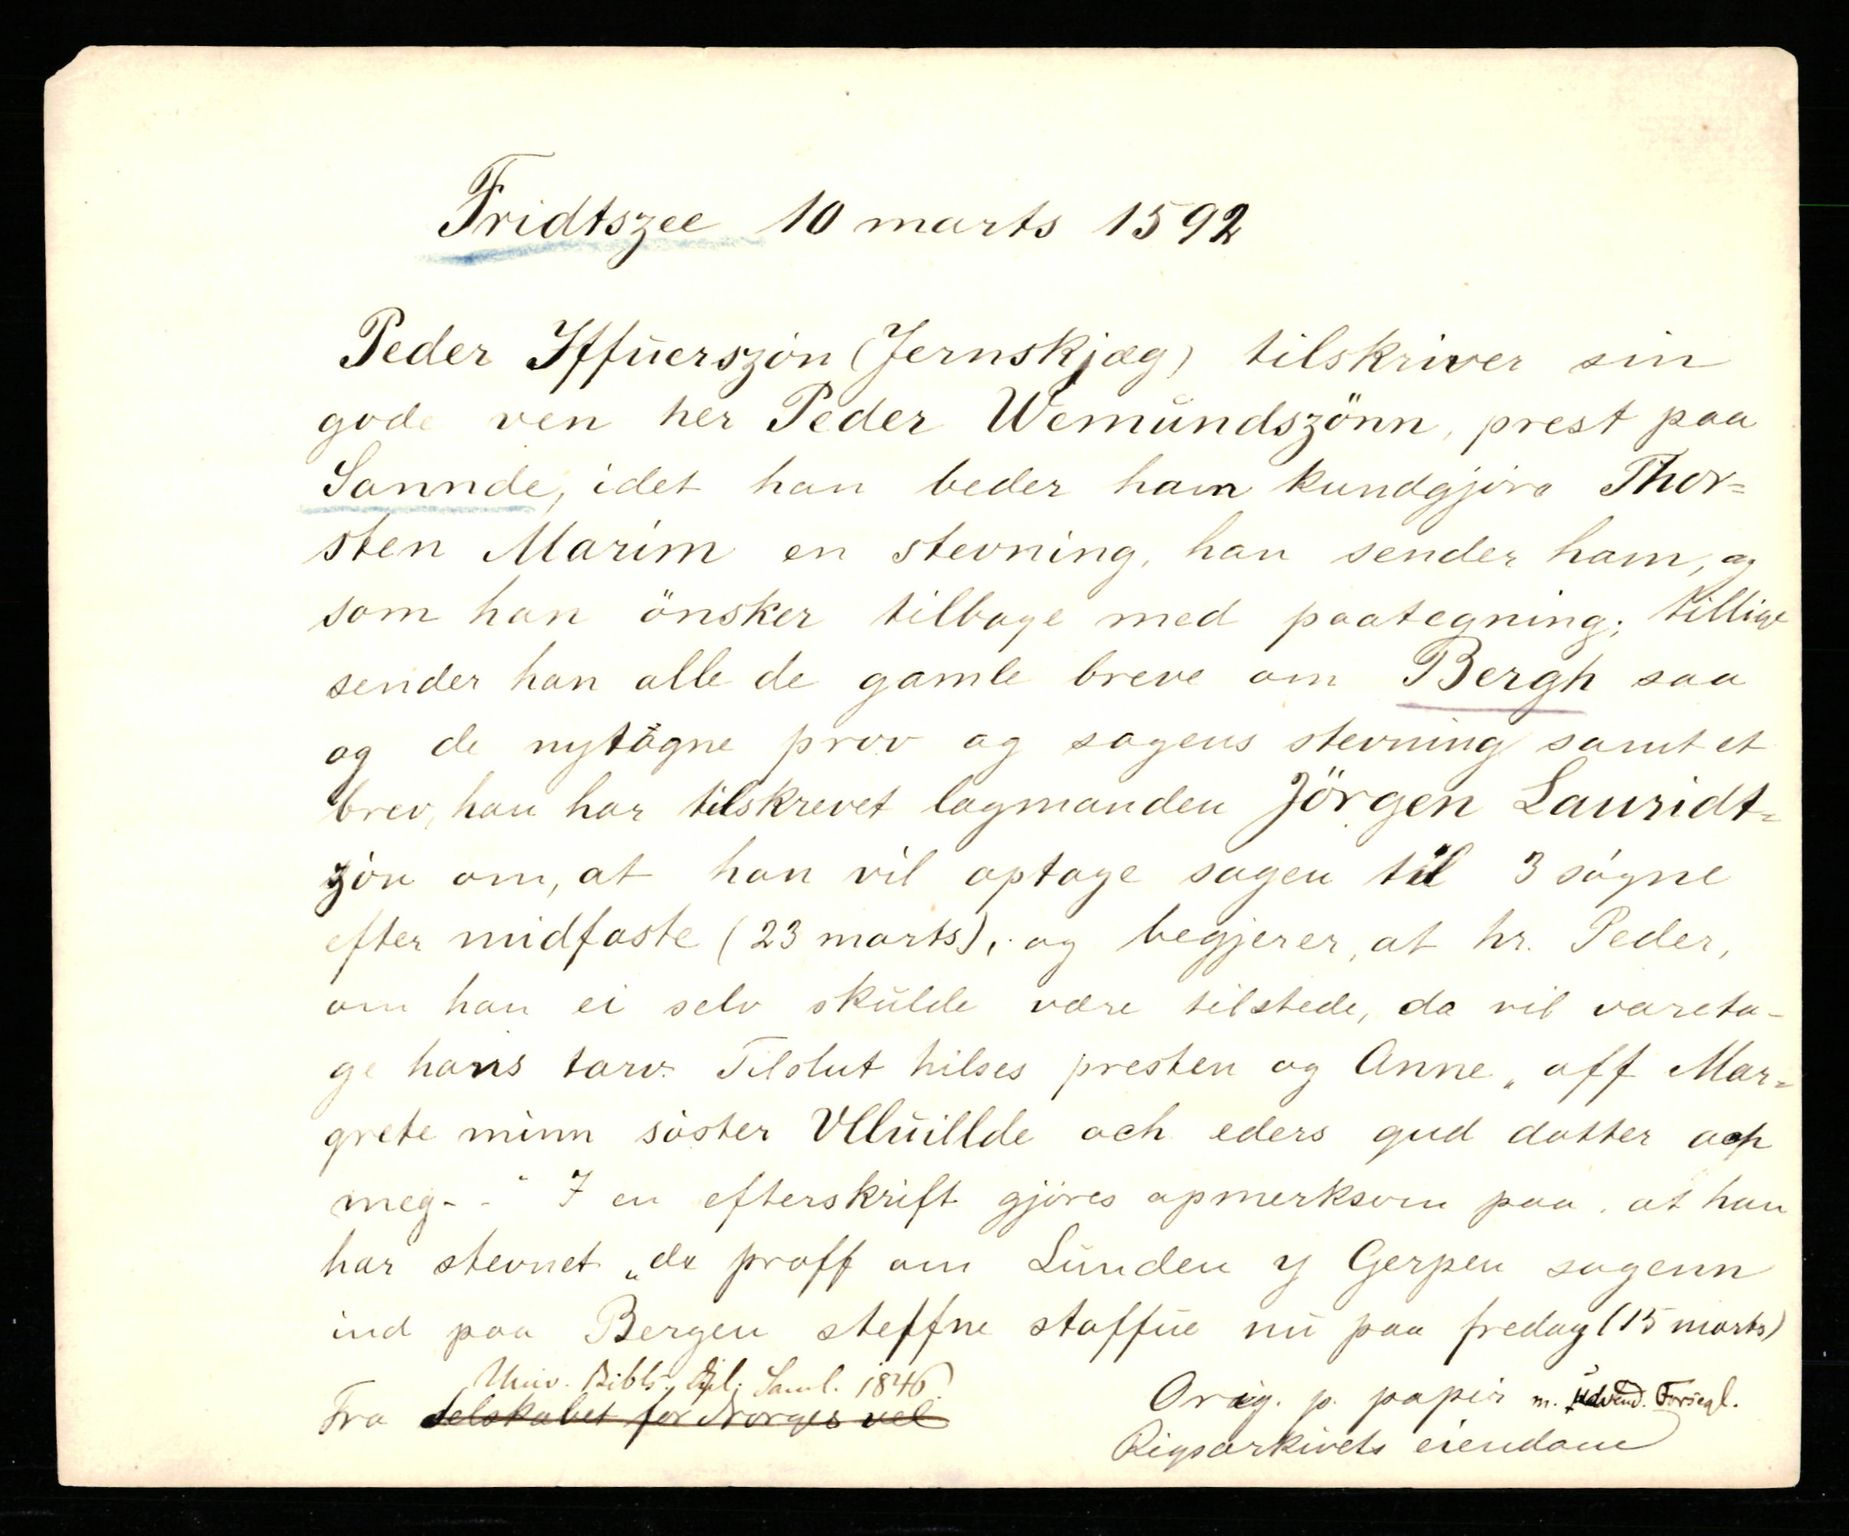 Fridtszee 10 marts 1592
Peder Iffuerszön (Jernskjæg) tilskriver sin
gode ven her Peder Wemundszönn, prest paa
Sannde, idet han beder ham kundgjöre Thor=
sten Marim en stevning, han sender ham, og
som han önsker tilbage med paategning; tillige
sender han alle de gamle breve om Bergh saa
og de nytagne prov og sagens stevning samt et
brev, han har tilskrevet lagmanden Jörgen Lauridt=
zön om, at han vil optage sagen til 3 sögne
efter midfaste (23 marts), og begjerer, at hr. Peder,
om han ei selv skulde være tilstede, da vil vareta-
ge hans tarv. Tilslut hilses presten og Anne „aff Mar=
grete minn söster Vlluillde och eders gud datter och
meg- -" I en efterskrift gjöres opmerksom paa, at han
har stevnet „de proff om Lunden y Gerpen sogenn
ind paa Bergen steffne stoffue nu paa fredag (15 marts)
Univ. Bibl. Dipl. Saml. 1846.
Fra Selskabet for Norges vel
Orig. p. papir m. udvend. Forsegl.
Rigsarkivets eiendom